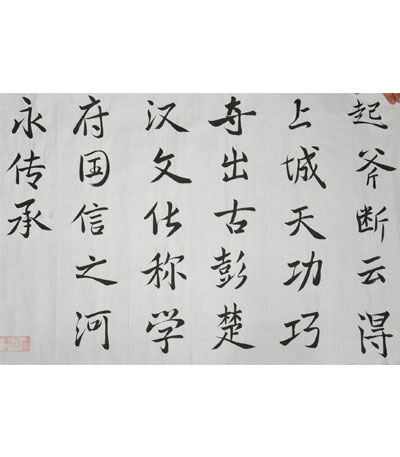 起斧断云得
上城天功巧
夺出古彭楚
汉文化称学
府国信之河
永传承